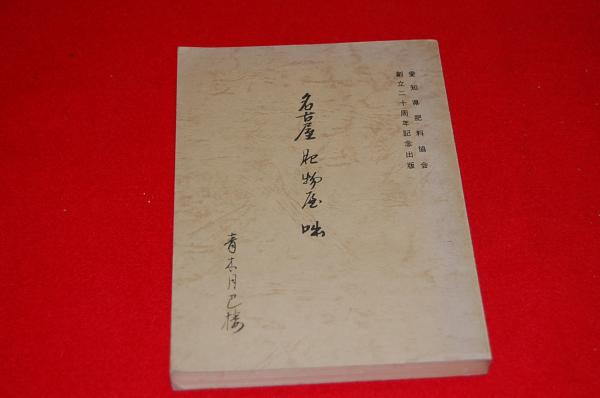 愛知県肥料協会
創立二十周年記念出版
名古屋肥物屋咄
青木月